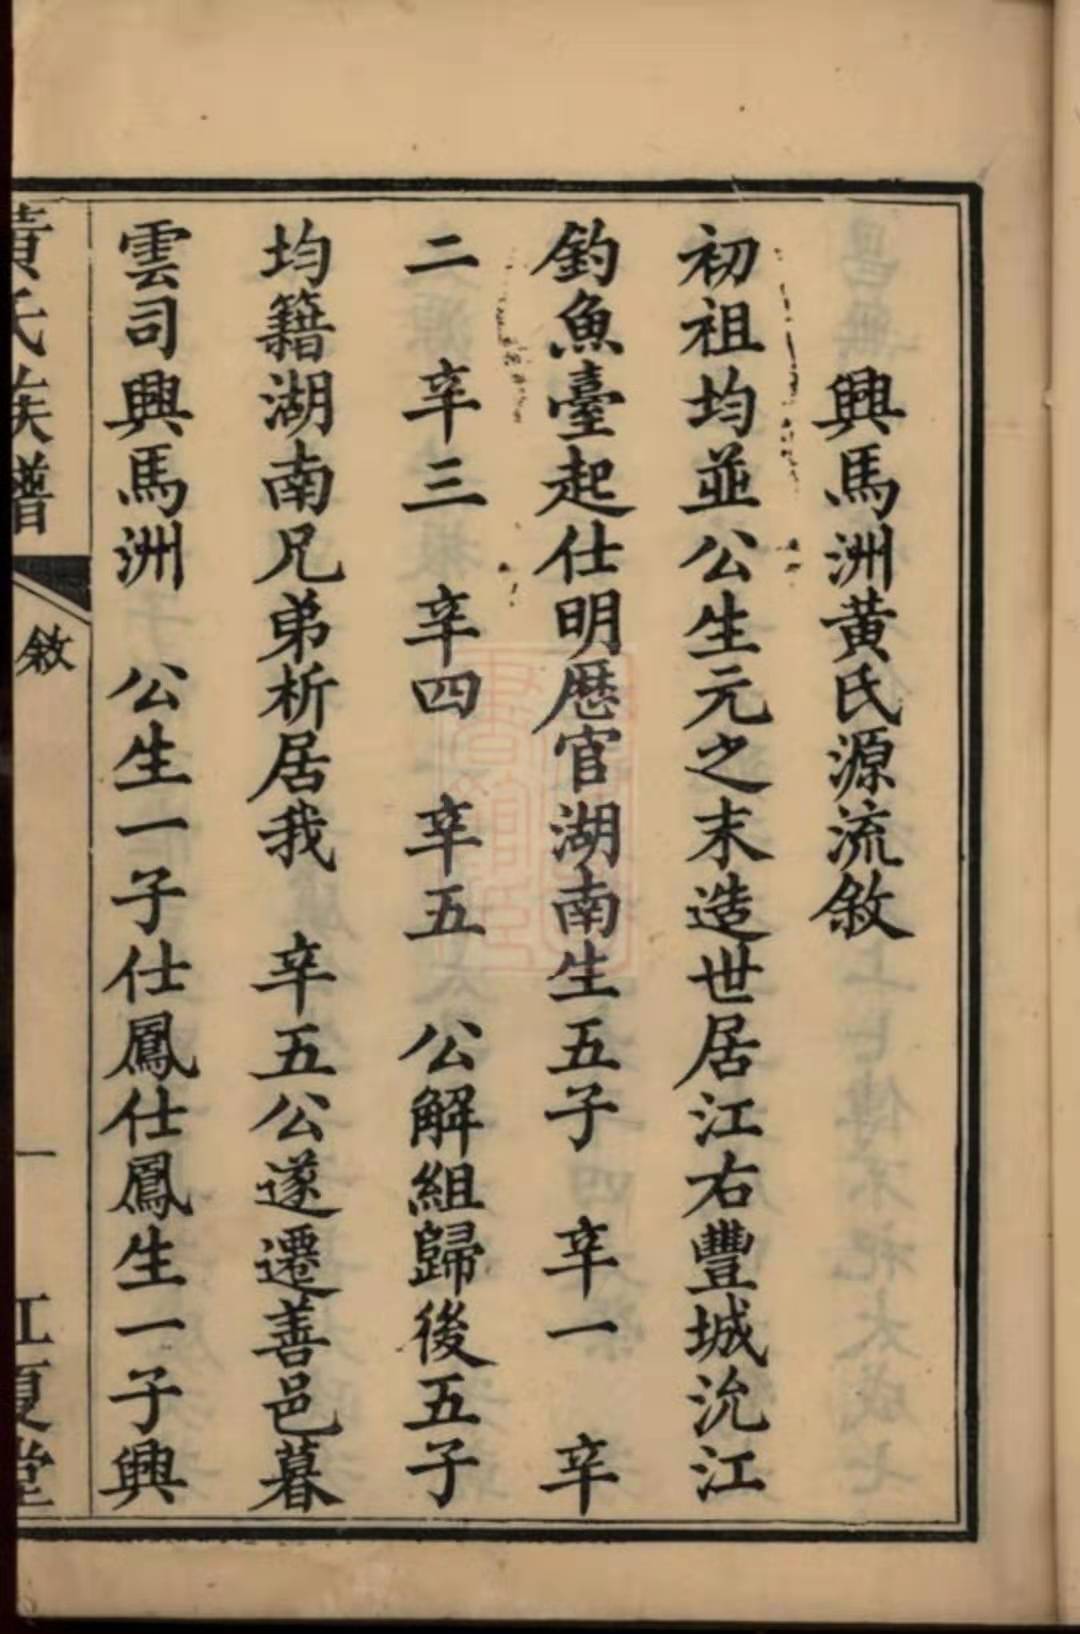 興馬洲黃氏源流敘
初祖均並公生元之末造世居江右豐城沇江
釣魚臺起仕明歷官湖南生五子 辛一 辛
二 辛三 辛四 辛五 公解組歸後五子
均籍湖南兄弟析居我 辛五公遂遷善邑暮
雲司興馬洲 公生一子仕鳳仕鳳生一子興
黃氏族譜
敘
一
江夏堂